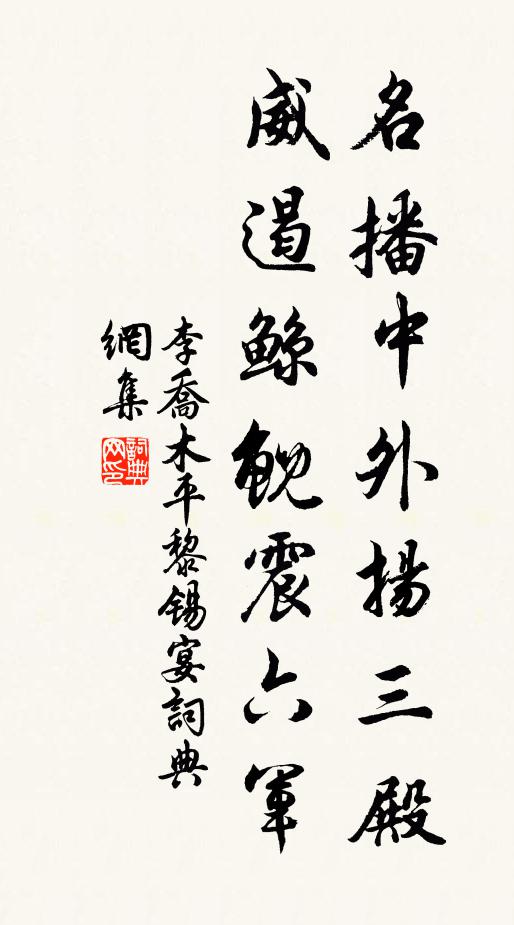 名播中外揚三殿
威遏鯨鯢震六軍
李喬木平黎錫宴詞典
網集
詞典
网印